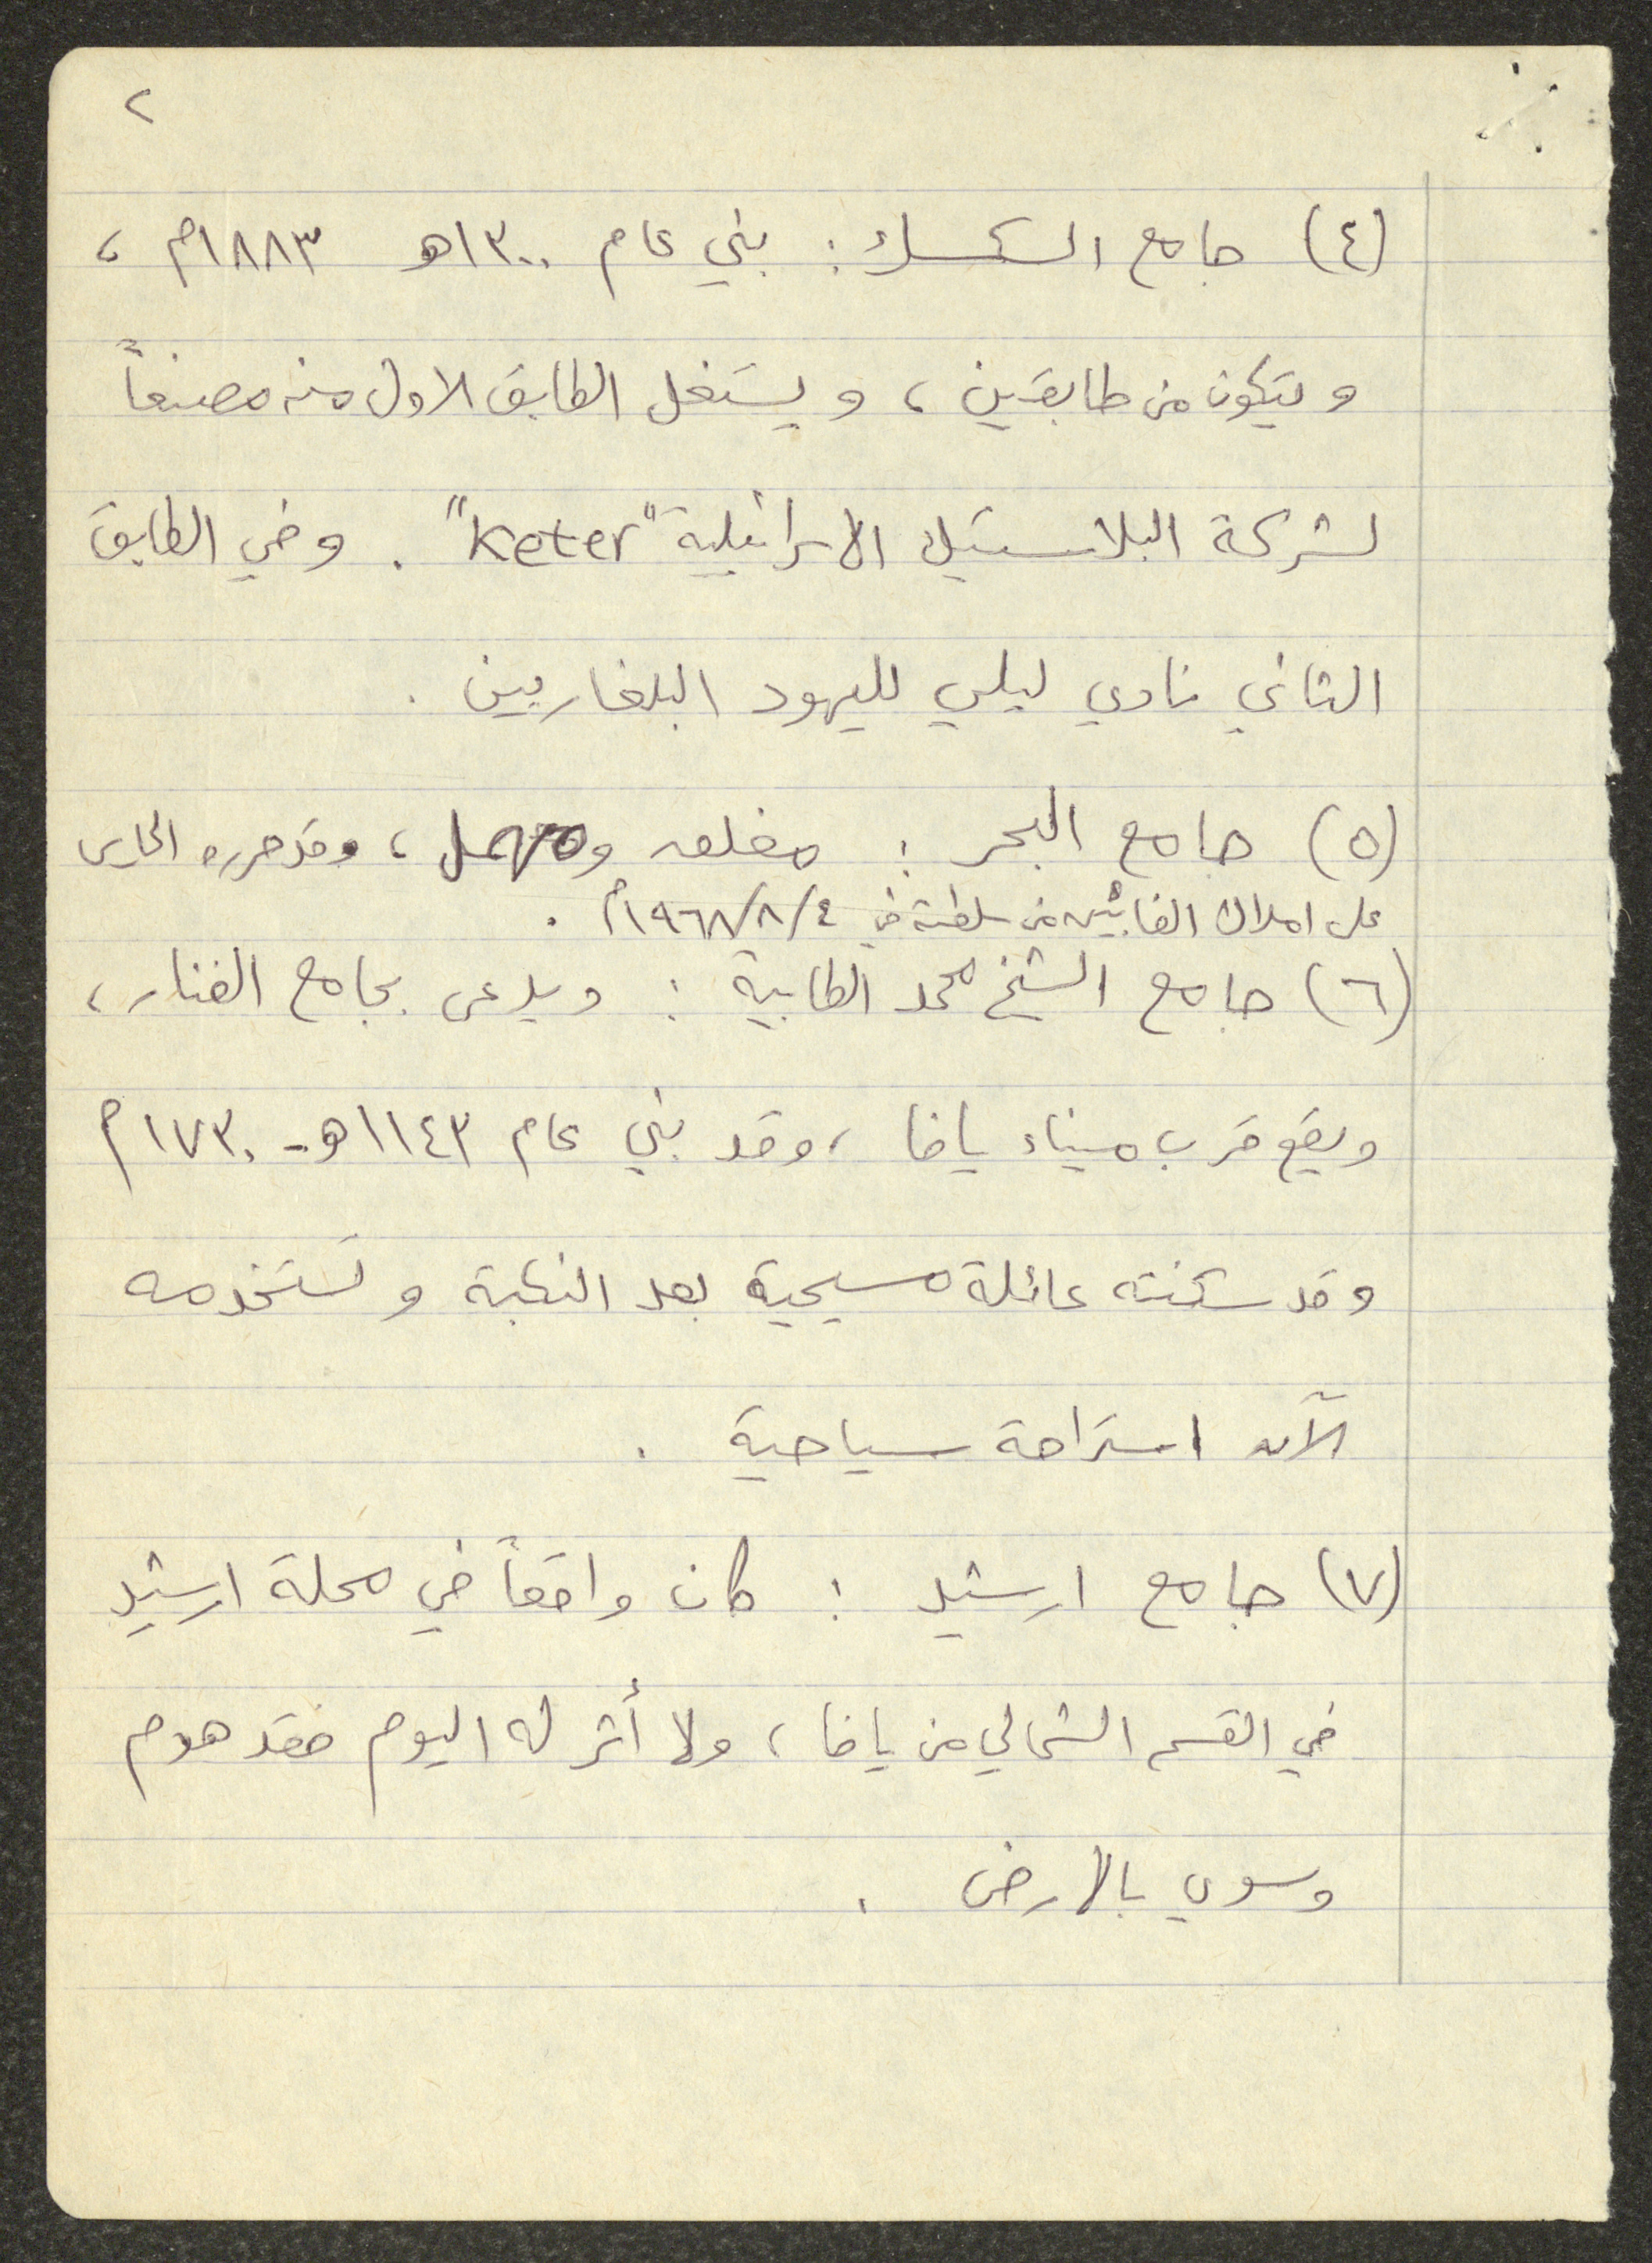 ٢
(٤) جامع السكسك : بني عام ١٣٠٠هـ ١٨٨٣م ،
ويتكون من طابقين ، ويستغل الطابق الاول منه مصنعاً
لشركة البلاستيك الاسرائيلية "Keter" . وفي الطابق
الثاني نادي ليلي لليهود البلغاريين .
(٥) جامع البحر : مغلق ومهمل ، وقد حرره الحارس
على املاك الغائبين من سلطته في ١٩٦٨/٨/٤م .
(٦) جامع الشيخ محمد الطابية : ويدعى بجامع الفنار ،
ويقع قرب ميناء يافا ، وقد بني عام ١١٤٣هـ - ١٧٣٠م
وقد سكنته عائلة مسيحية بعد النكبة وتستخدمه
الآن استراحة سياحية .
(٧) جامع ارشيد : كان واقعاً في محلة ارشيد
في القسم الشمالي من يافا ، ولا أثر له اليوم فقد هدم
وسوي بالارض .